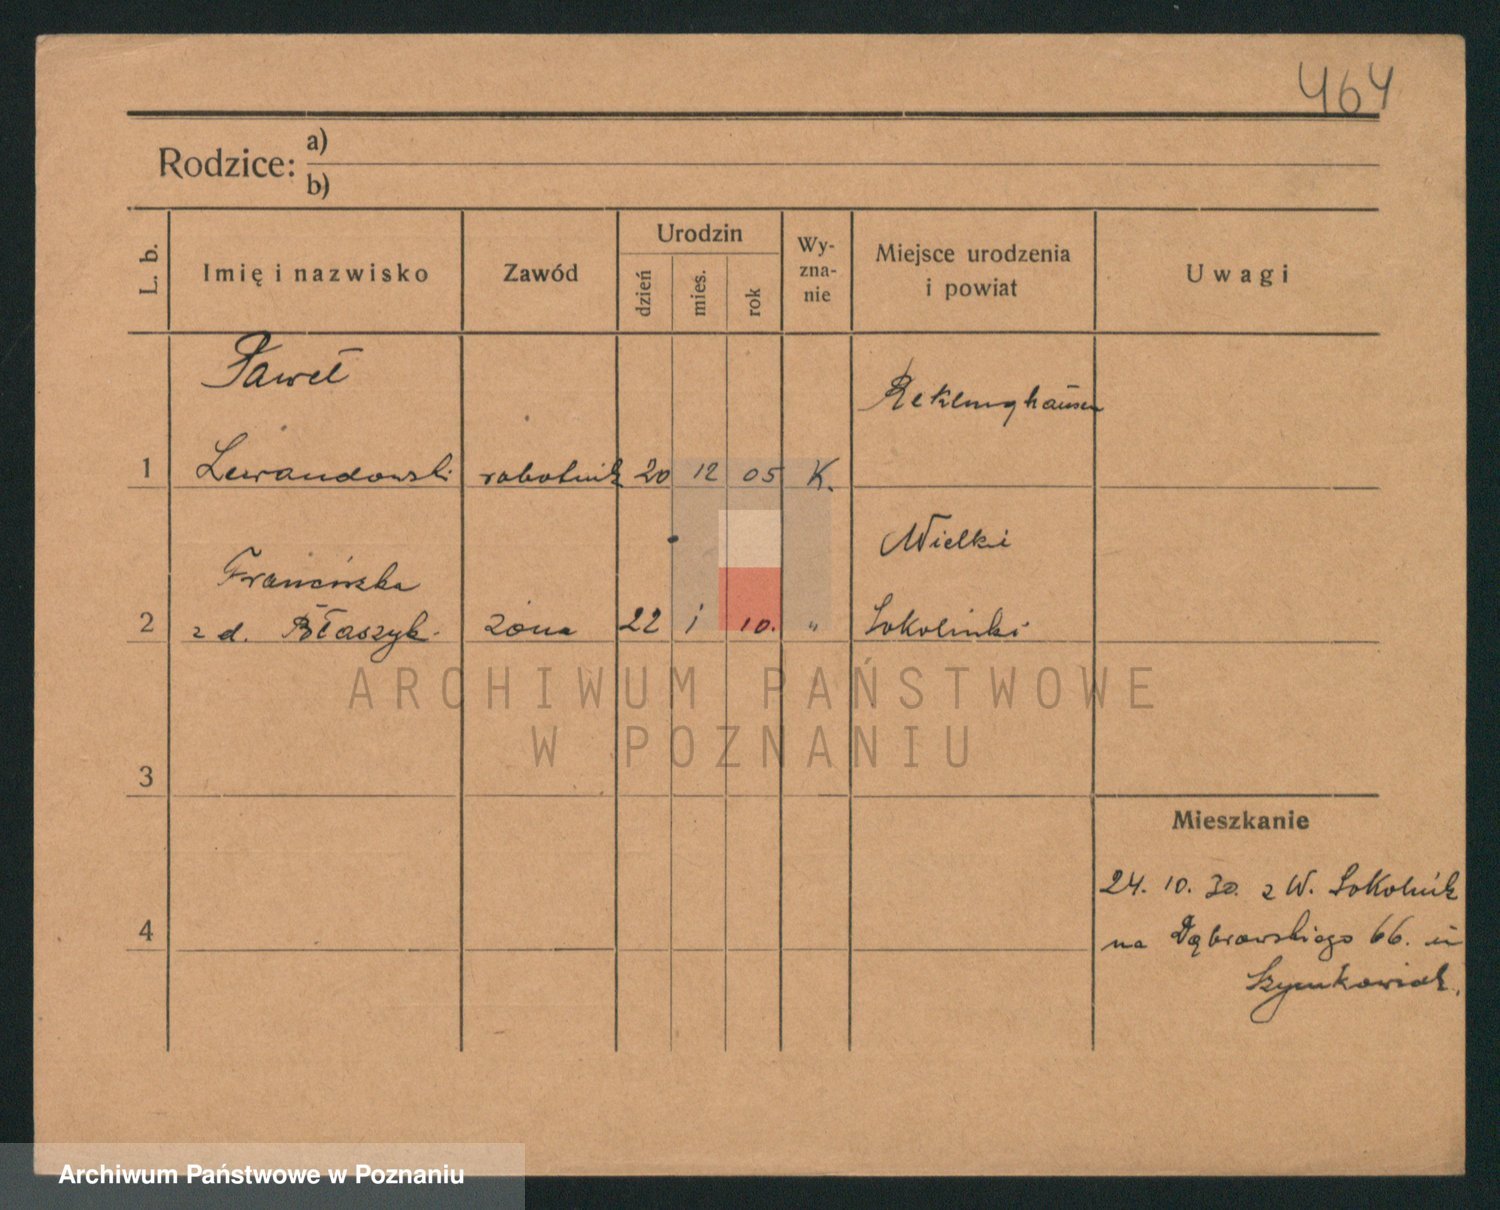 464
Rodzice: a)
b)
L. b.
Imię i nazwisko
Zawód
Urodzin
dzień
mies.
rok
Wy-
zna-
nie
Miejsce urodzenia
i powiat
Uwagi
1
Paweł
Lewandowski
robotnik
20
12
05
K.
Reklinghausen
2
Franciszka
z d. Błaszyk.
żona
22
1
10.
"
Wielki
Sokolniki
3
4
Mieszkanie
24. 10. 30. z W. Sokolnik
na Dąbrowskiego 66.
Szymkowiak.
ARCHIWUM PAŃSTWOWE
W POZNANIU
Archiwum Państwowe w Poznaniu